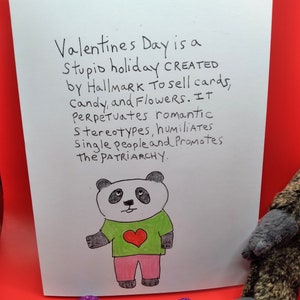 Valentines Day is a
Stupid holiday CREATED
by Hallmark To sell cards,
Candy, and Flowers. IT
Perpetuates romantic
Stereotypes, humiliates
Single people and Promotes
The PATRIARCHY.